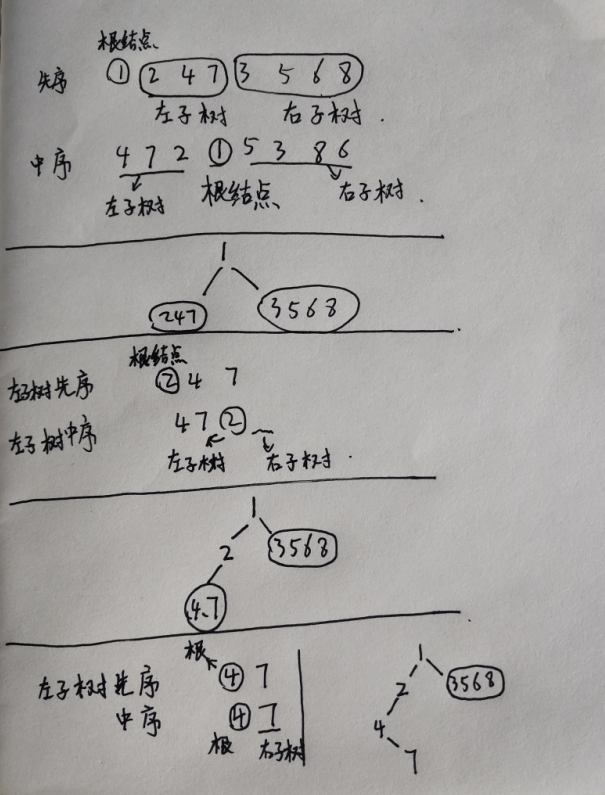 根结点
先序 ① 2 4 7 3 5 6 8
左子树 右子树.
中序 4 7 2 ① 5 3 8 6
左子树 根结点 右子树.
1
247 3568
根结点
左子树先序 ② 4 7
左子树中序 4 7 ②
左子树 右子树.
1
2 3568
4.7
根
左子树先序 ④ 7
中序 ④ 7
根 右子树
1
2 3568
4
7